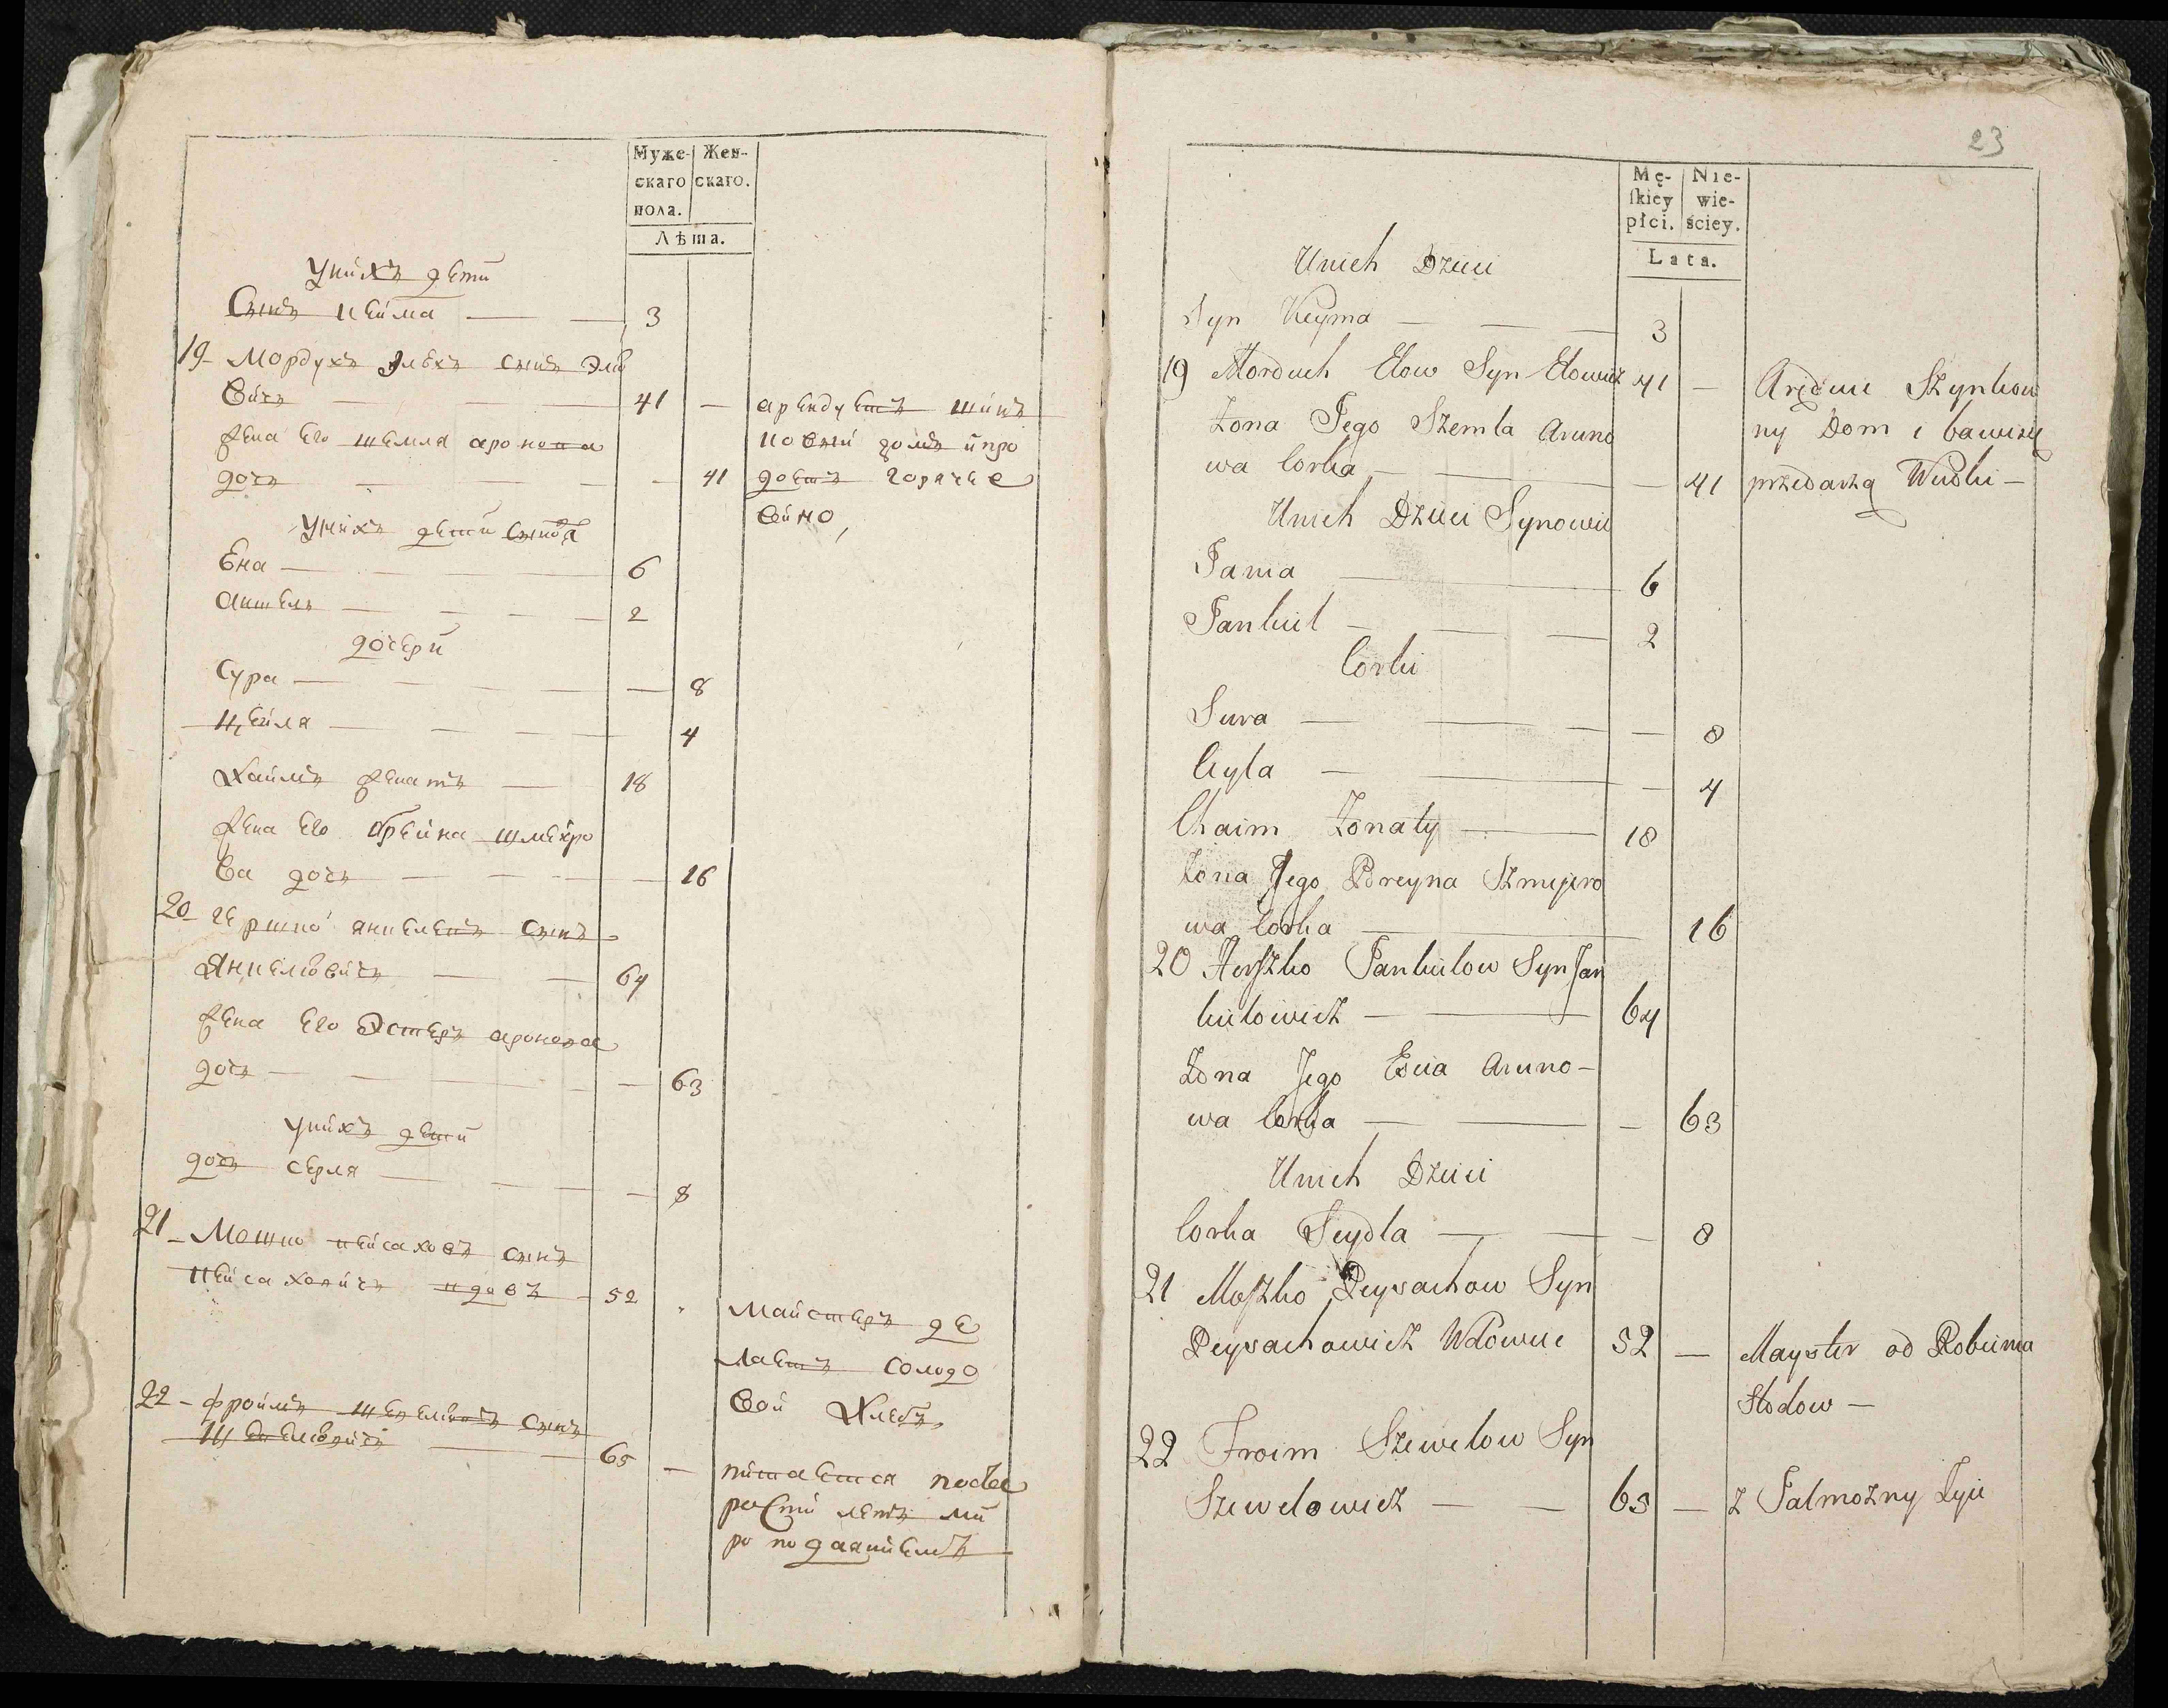 Муже- Жен-
скаго скаго.
пола.
Лѣта.
Унихъ дети
Сынъ Кейма — — 3
19 Мордухъ Элевъ сынъ Эле
вичъ — — 41 — арендуетъ шин
ковый домъ и про
Жена Его Шемля аронова
дочъ — — — 41 даетъ горячее
вино,
Унихъ дети Сыновя
Ена — — 6
Анкель — — 2
дочери
Сура — — — 8
Цейла — — 4
Хаимъ женатъ — 18
Жена Его Брейна шмеиро
ва дочъ — — — 16
20 Гершко янкелевъ сынъ
Янкелевичъ — — 64
Жена Его Эстеръ аронова
дочъ — — — 63
Унихъ дети
дочъ Сейля — — — 8
21 Мошко пейсаховъ сынъ
пейсаховичъ вдовъ — 52 Майстеръ де
лаетъ солодо
вой хлебъ
22 Фроимъ Шевелевъ сынъ
Шевелевичъ — — 65 — питается поста
рости летъ ми
ро подаяниемъ
23
Mę- Nie-
skiey wie-
płci. ściey.
Lata.
Unich Dzieci
Syn Keyma — — — 3
19 Morduch Elow Syn Elowicz 41 — Aręduie Szynkow
Żona Jego Szemla Aruno
ny Dom i bawi się
wa Corka — — — 41 przedażą Wudki —
Unich Dzieci Synowie
Jania — 6
Jankiel — — — 2
Corki
Sura — — — — 8
Ceyla — — — 4
Chaim Żonaty — 18
Żona Jego Breyna Szmujero
wa Corka — 16
20 Herszko Jankielow Syn Jan
kielowicz — — 64
Żona Jego Esia Aruno-
wa Corka — — — 63
Unich Dzieci
Corka Seydla — — — 8
21 Moszko Peysachow Syn
Peysachowicz Wdowiec 52 — Mayster od Robienia
Słodow —
22 Froim Szewelow Syn
Szewelowicz — — 65 — z Jalmożny Żyie